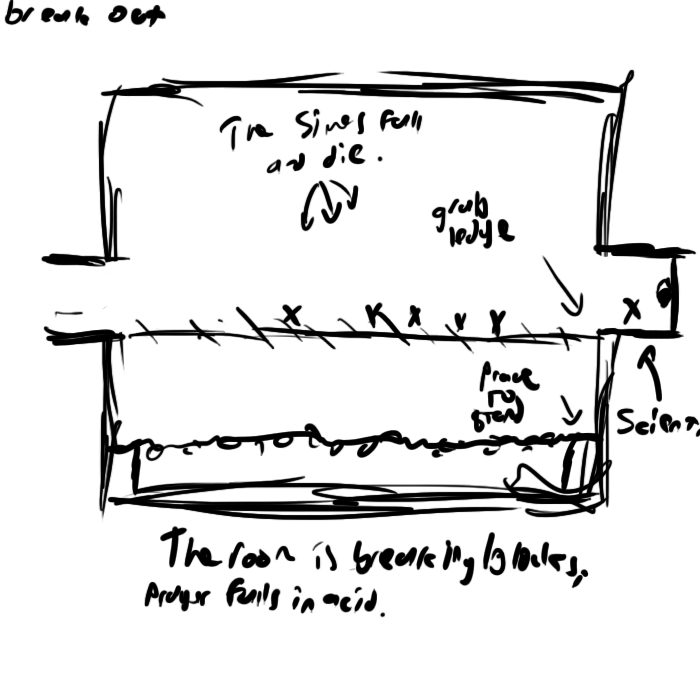 break out
The Sines Fall
and die.
grab
ledge
Place
to
stand
Scien
The room is breaking
Player Falls in acid.